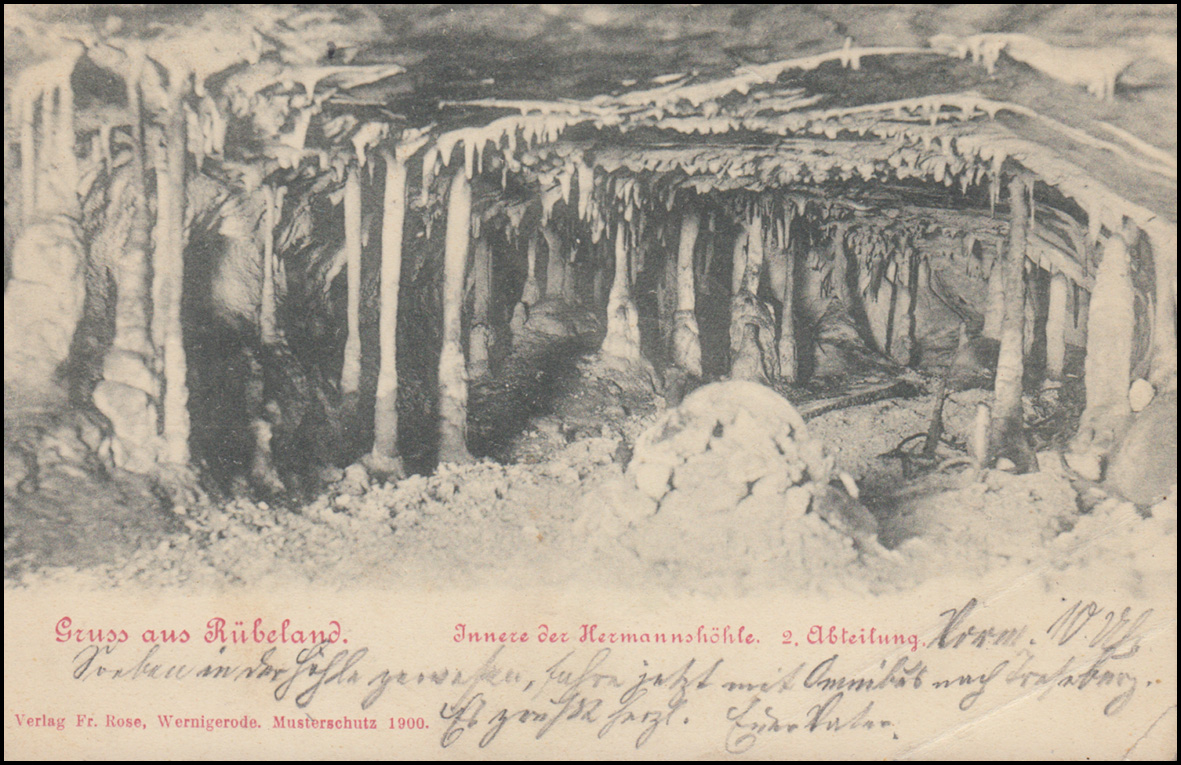 Gruss aus Rübeland. Innere der Hermannshöhle. 2. Abteilung.
Vorm. 10. Uhr
Soeben in der Höhle gewesen, fahre jetzt mit Omnibus nach Treseburg.
Verlag Fr. Rose, Wernigerode. Musterschutz 1900.
Es grüßt herzl. Euer Vater.